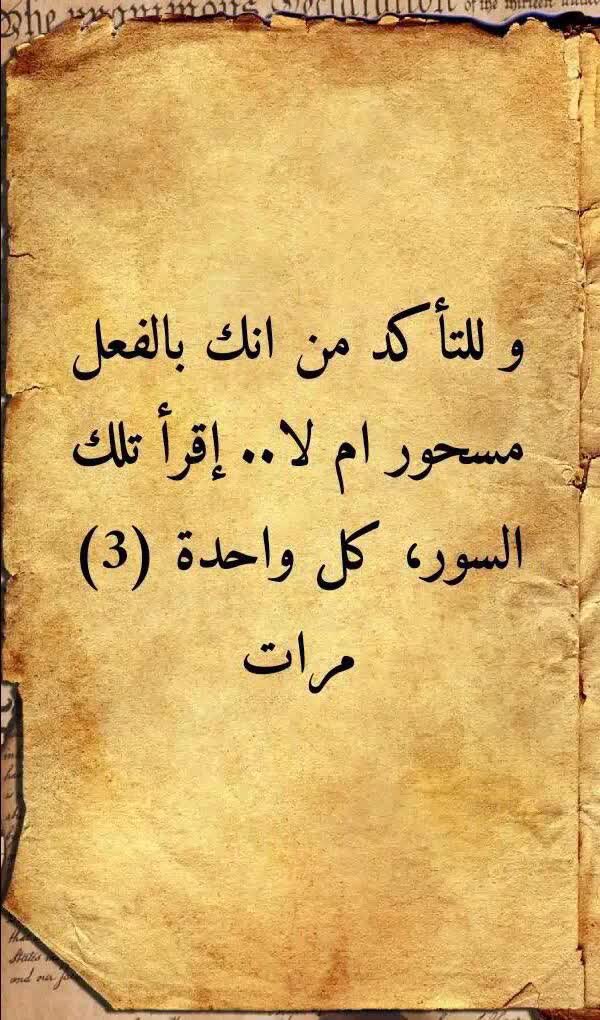 The unanimous Declaration of the thirteen united
و للتأكد من انك بالفعل
مسحور ام لا.. إقرأ تلك
السور، كل واحدة (3)
مرات
States
and our